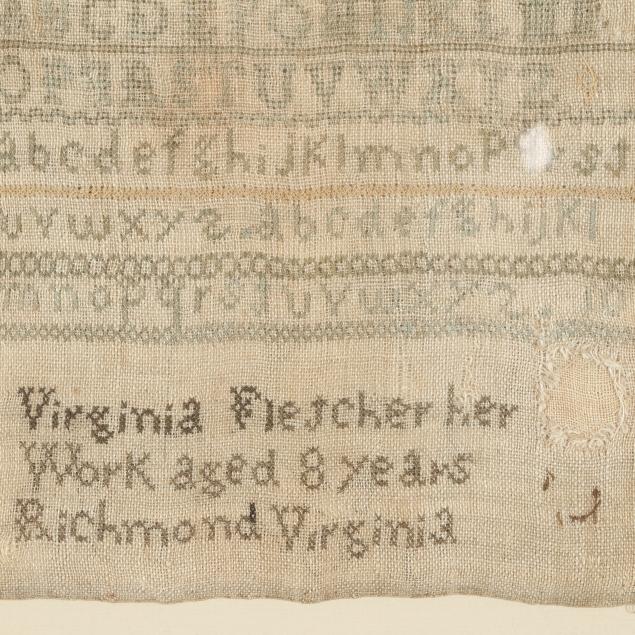 O P Q R S T U V W X Y Z
a b c d e f g h i j k l m n o p r s t
u v w x y z a b c d e f g h i j k l
m n o p q r s t u v w x y z
Virginia Fletcher her
Work aged 8 years
Richmond Virginia